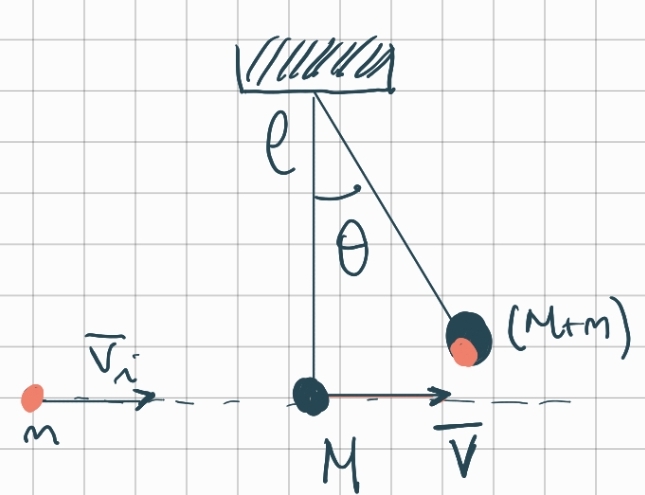 ℓ
θ
(M+m)
V̅ᵢ
m
M
V̅